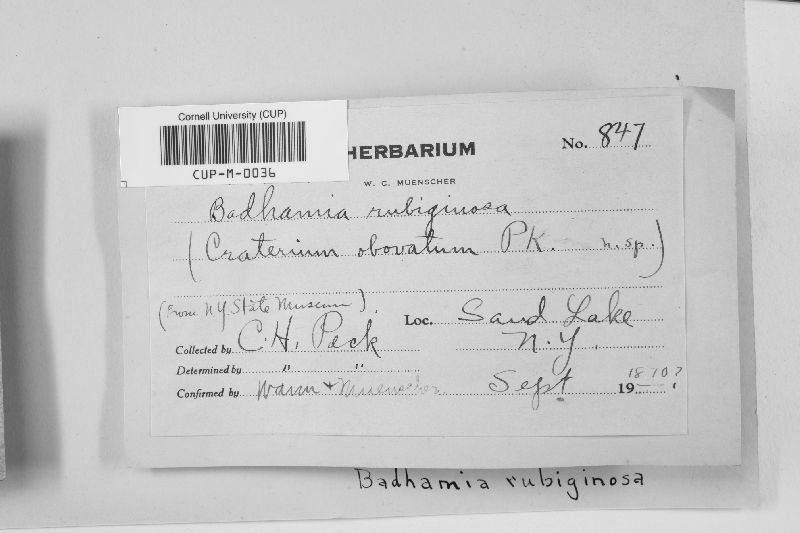 Cornell University (CUP)
CUP-M-0036
HERBARIUM
No. 847
W. C. MUENSCHER
Badhamia rubiginosa
(Craterium obovatum Pk. n. sp.)
(From N Y State Museum)
Loc. Sand Lake
N. Y.
Collected by C. H. Peck
Determined by " "
Confirmed by Wann + Muenscher
Sept 19 1870?
Badhamia rubiginosa